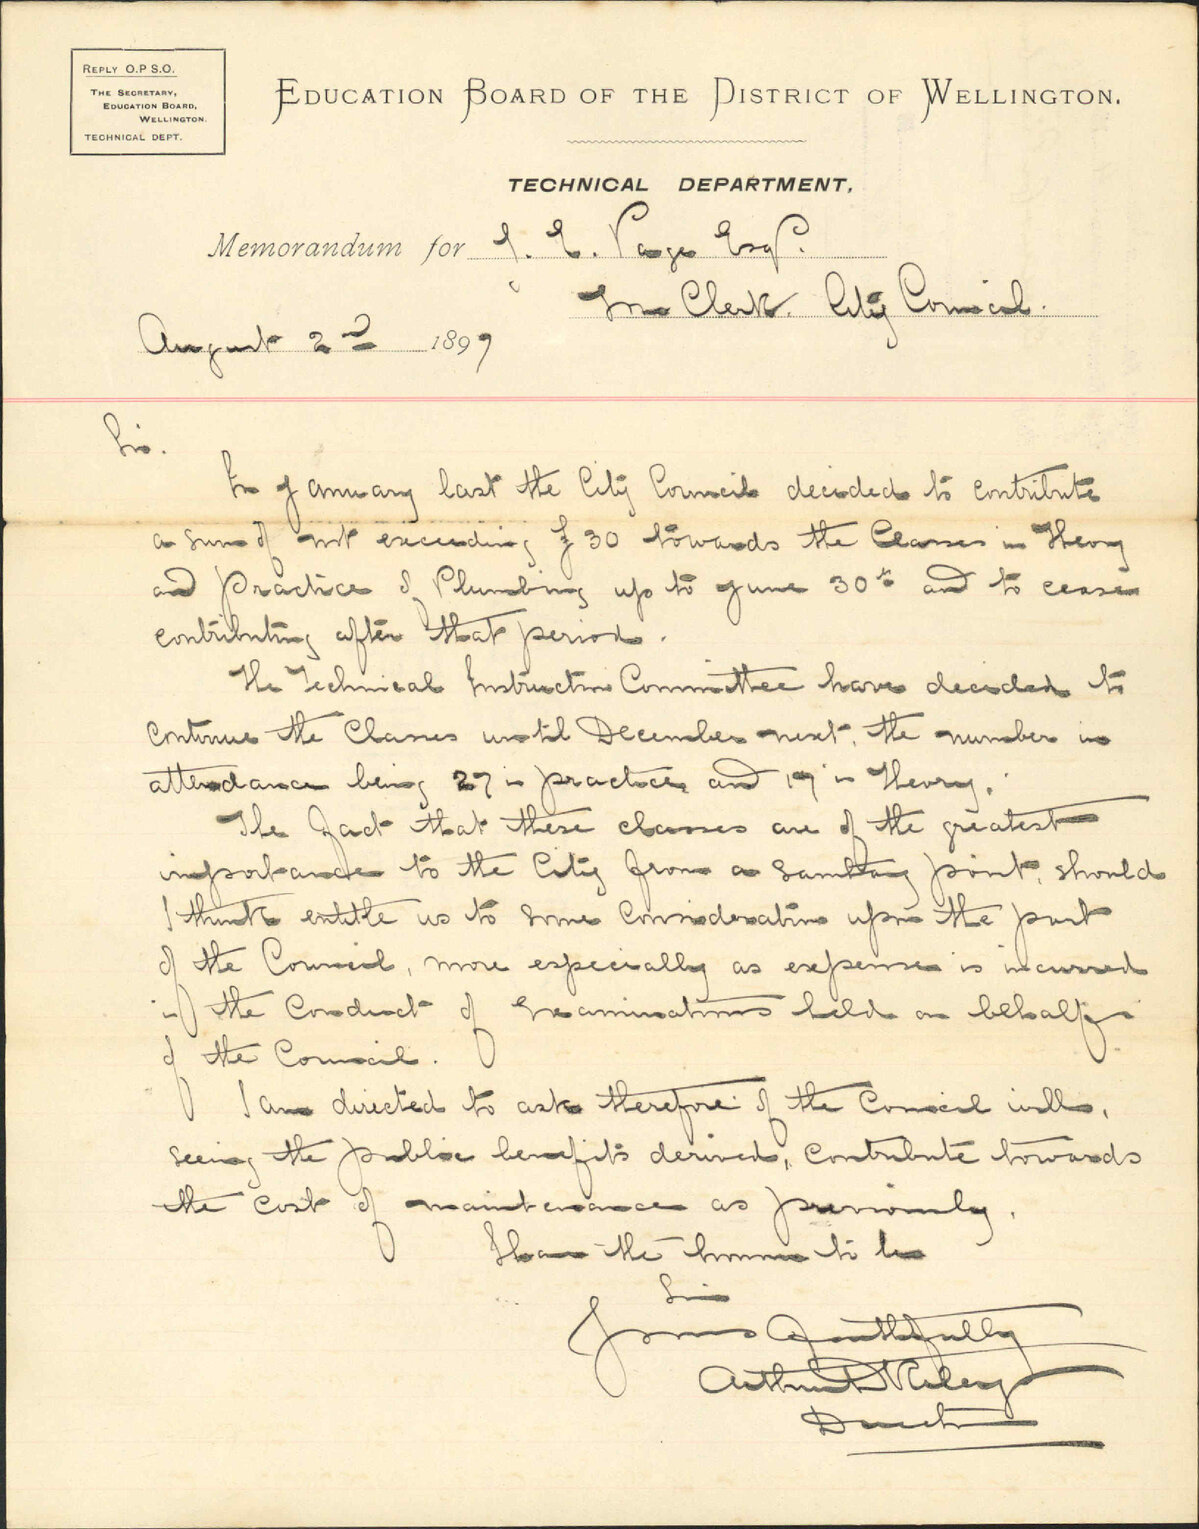 REPLY O.P S.O.
THE SECRETARY,
EDUCATION BOARD,
WELLINGTON.
TECHNICAL DEPT.
EDUCATION BOARD OF THE DISTRICT OF WELLINGTON.
TECHNICAL DEPARTMENT.
Memorandum for J. E. Page Esqr.
The Clerk. City Council.
August 2nd 1897
Sir.
In January last the City Council decided to contribute
a sum of not exceeding £30 towards the Classes in Theory
and Practice of Plumbing up to June 30th and to cease
contributing after that period.
The Technical Instruction Committee have decided to
continue the Classes until December next, the number in
attendance being 27 in practice, and 19 in Theory.
The fact that these classes are of the greatest
importance to the City from a sanitary point, should
I think entitle us to some consideration upon the part
of the Council, more especially as expense is incurred
in the conduct of Examinations held on behalf
of the Council.
I am directed to ask therefore if the Council will,
seeing the public benefits derived, contribute towards
the cost of maintenance as previously.
I have the honour to be
Sir
Yours faithfully
Arthur D Riley
Director